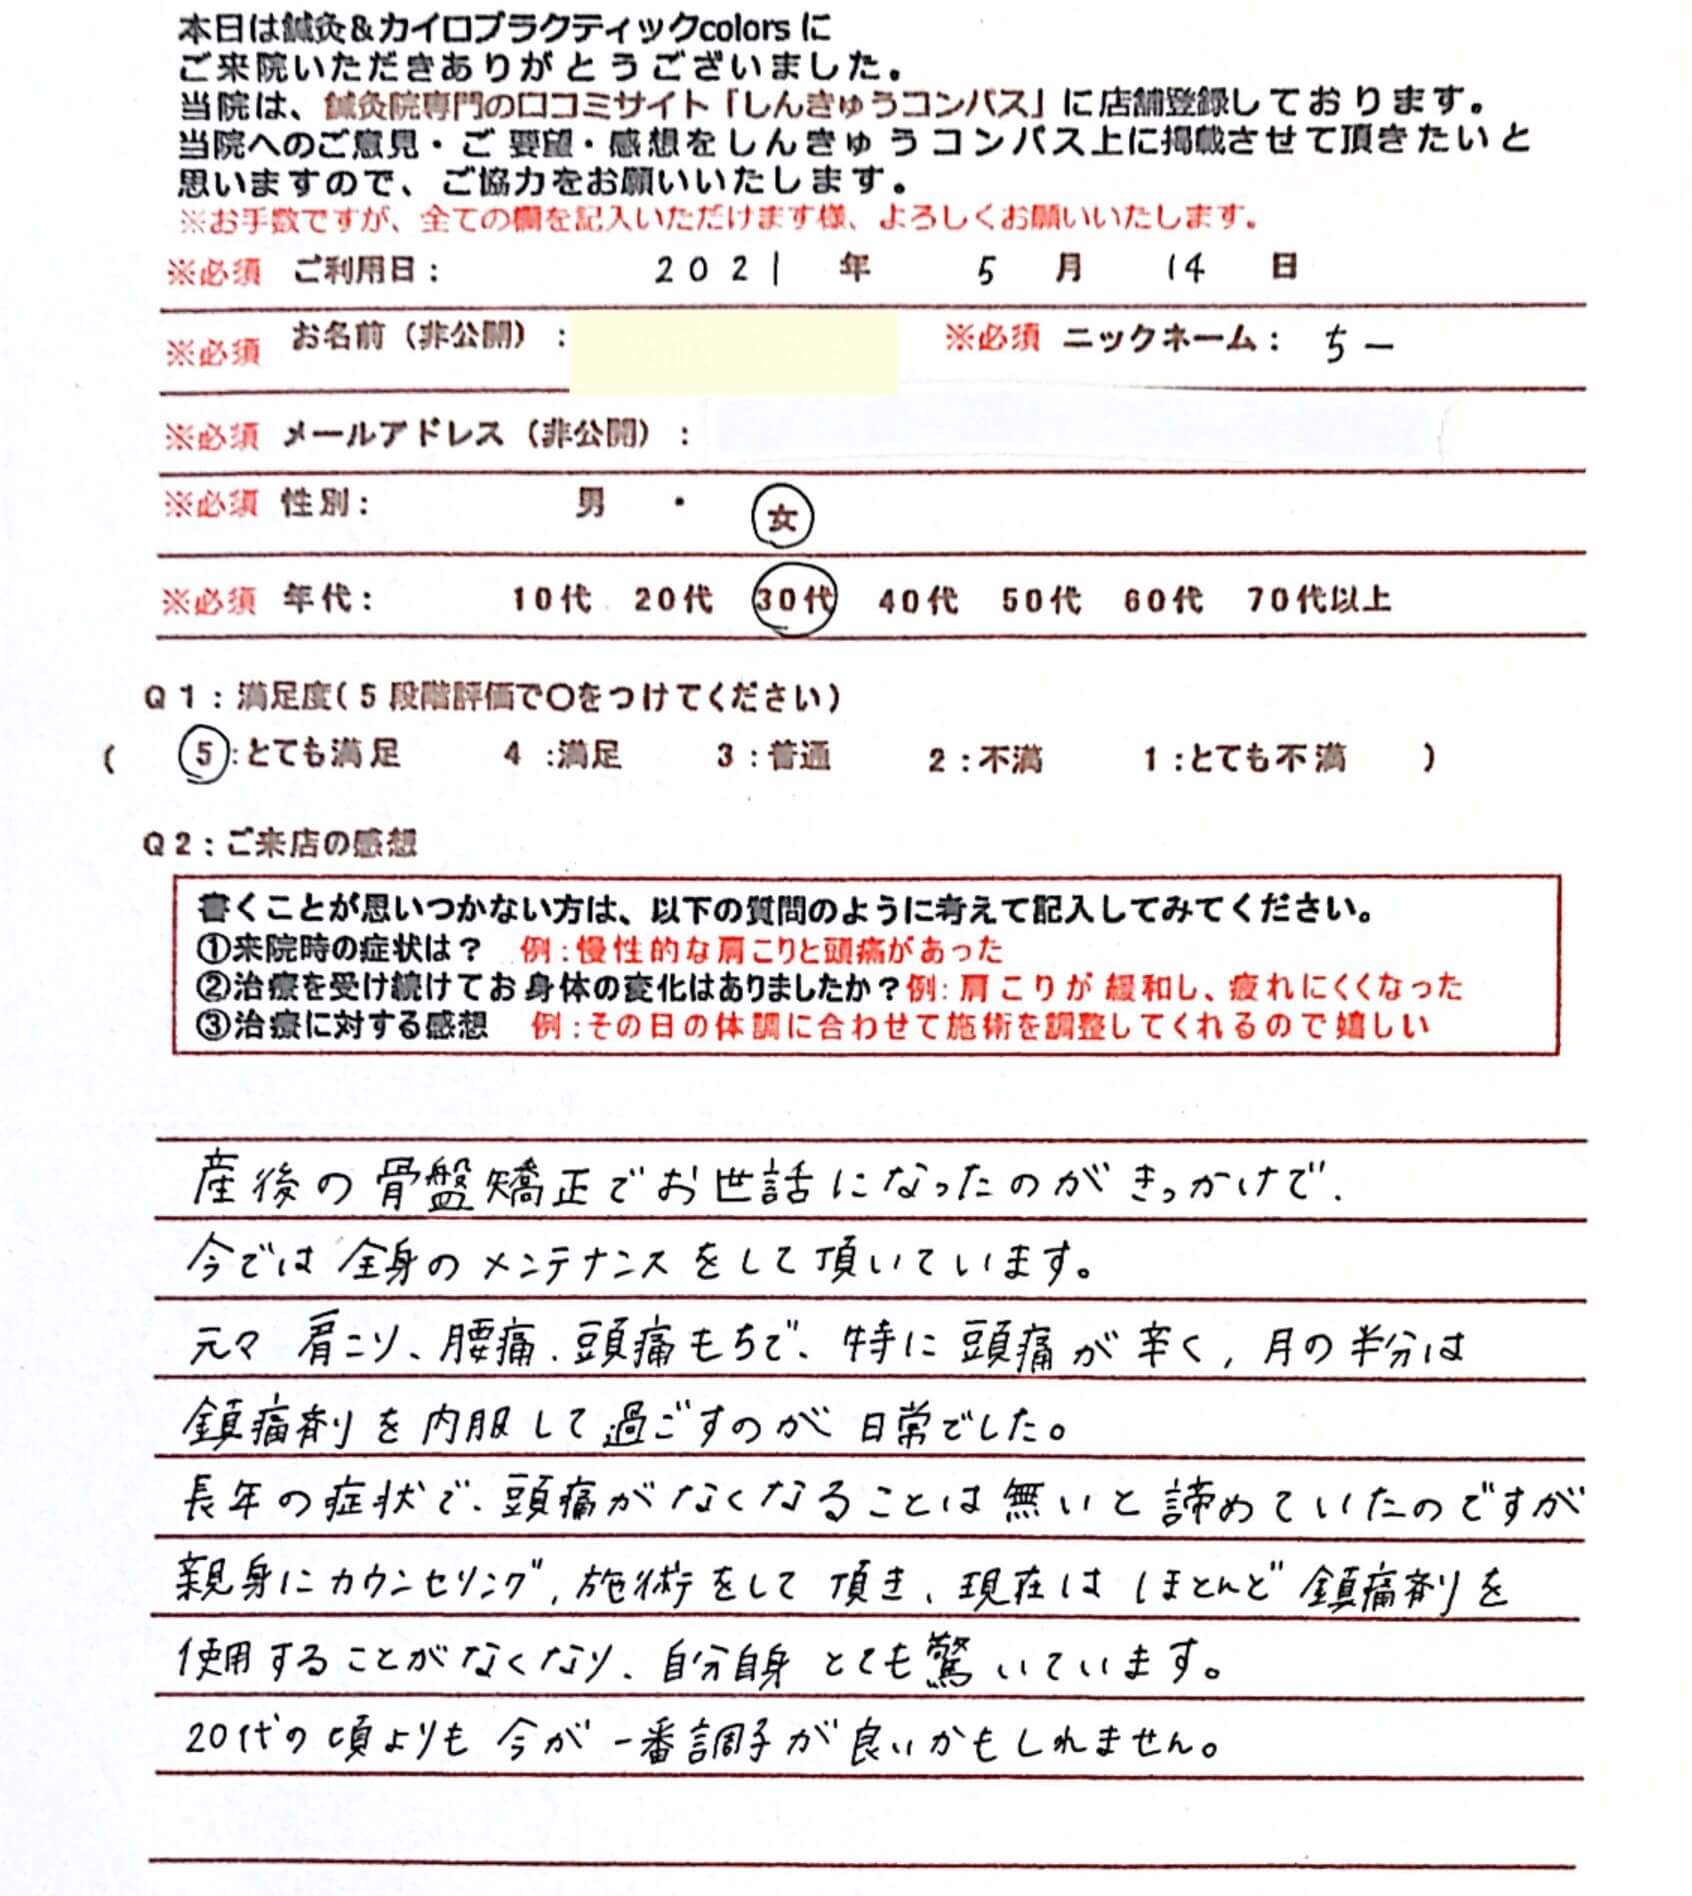 本日は鍼灸＆カイロプラクティックcolorsに
ご来院いただきありがとうございました。
当院は、鍼灸院専門の口コミサイト「しんきゅうコンパス」に店舗登録しております。
当院へのご意見・ご要望・感想をしんきゅうコンパス上に掲載させて頂きたいと
思いますので、ご協力をお願いいたします。
※お手数ですが、全ての欄を記入いただけます様、よろしくお願いいたします。
※必須 ご利用日： 2021 年 5 月 14 日
※必須 お名前（非公開）： ※必須 ニックネーム： ちー
※必須 メールアドレス（非公開）：
※必須 性別： 男 ・ 女
※必須 年代： 10代 20代 30代 40代 50代 60代 70代以上
Q1：満足度（5段階評価で〇をつけてください）
（ 5：とても満足 4：満足 3：普通 2：不満 1：とても不満 ）
Q2：ご来店の感想
書くことが思いつかない方は、以下の質問のように考えて記入してみてください。
①来院時の症状は？ 例：慢性的な肩こりと頭痛があった
②治療を受け続けてお身体の変化はありましたか？例：肩こりが緩和し、疲れにくくなった
③治療に対する感想 例：その日の体調に合わせて施術を調整してくれるので嬉しい
産後の骨盤矯正でお世話になったのがきっかけで、
今では全身のメンテナンスをして頂いています。
元々肩こり、腰痛、頭痛もちで、特に頭痛が辛く、月の半分は
鎮痛剤を内服して過ごすのが日常でした。
長年の症状で、頭痛がなくなることは無いと諦めていたのですが
親身にカウンセリング、施術をして頂き、現在はほとんど鎮痛剤を
使用することがなくなり、自分自身とても驚いています。
20代の頃よりも今が一番調子が良いかもしれません。